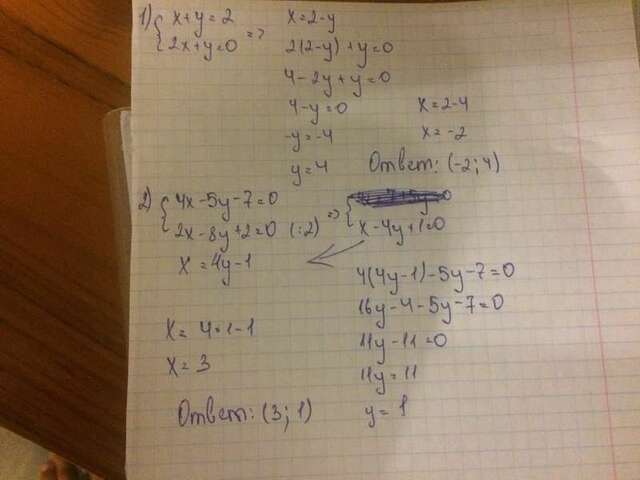 1) { x+y=2
2x+y=0 =>
x=2-y
2(2-y)+y=0
4-2y+y=0
4-y=0
-y=-4
y=4
x=2-4
x=-2
Ответ: (-2;4)
2) { 4x-5y-7=0
2x-8y+2=0 (:2) => { x-4y+1=0
x=4y-1
4(4y-1)-5y-7=0
16y-4-5y-7=0
11y-11=0
11y=11
y=1
x=4-1
x=3
Ответ: (3;1)